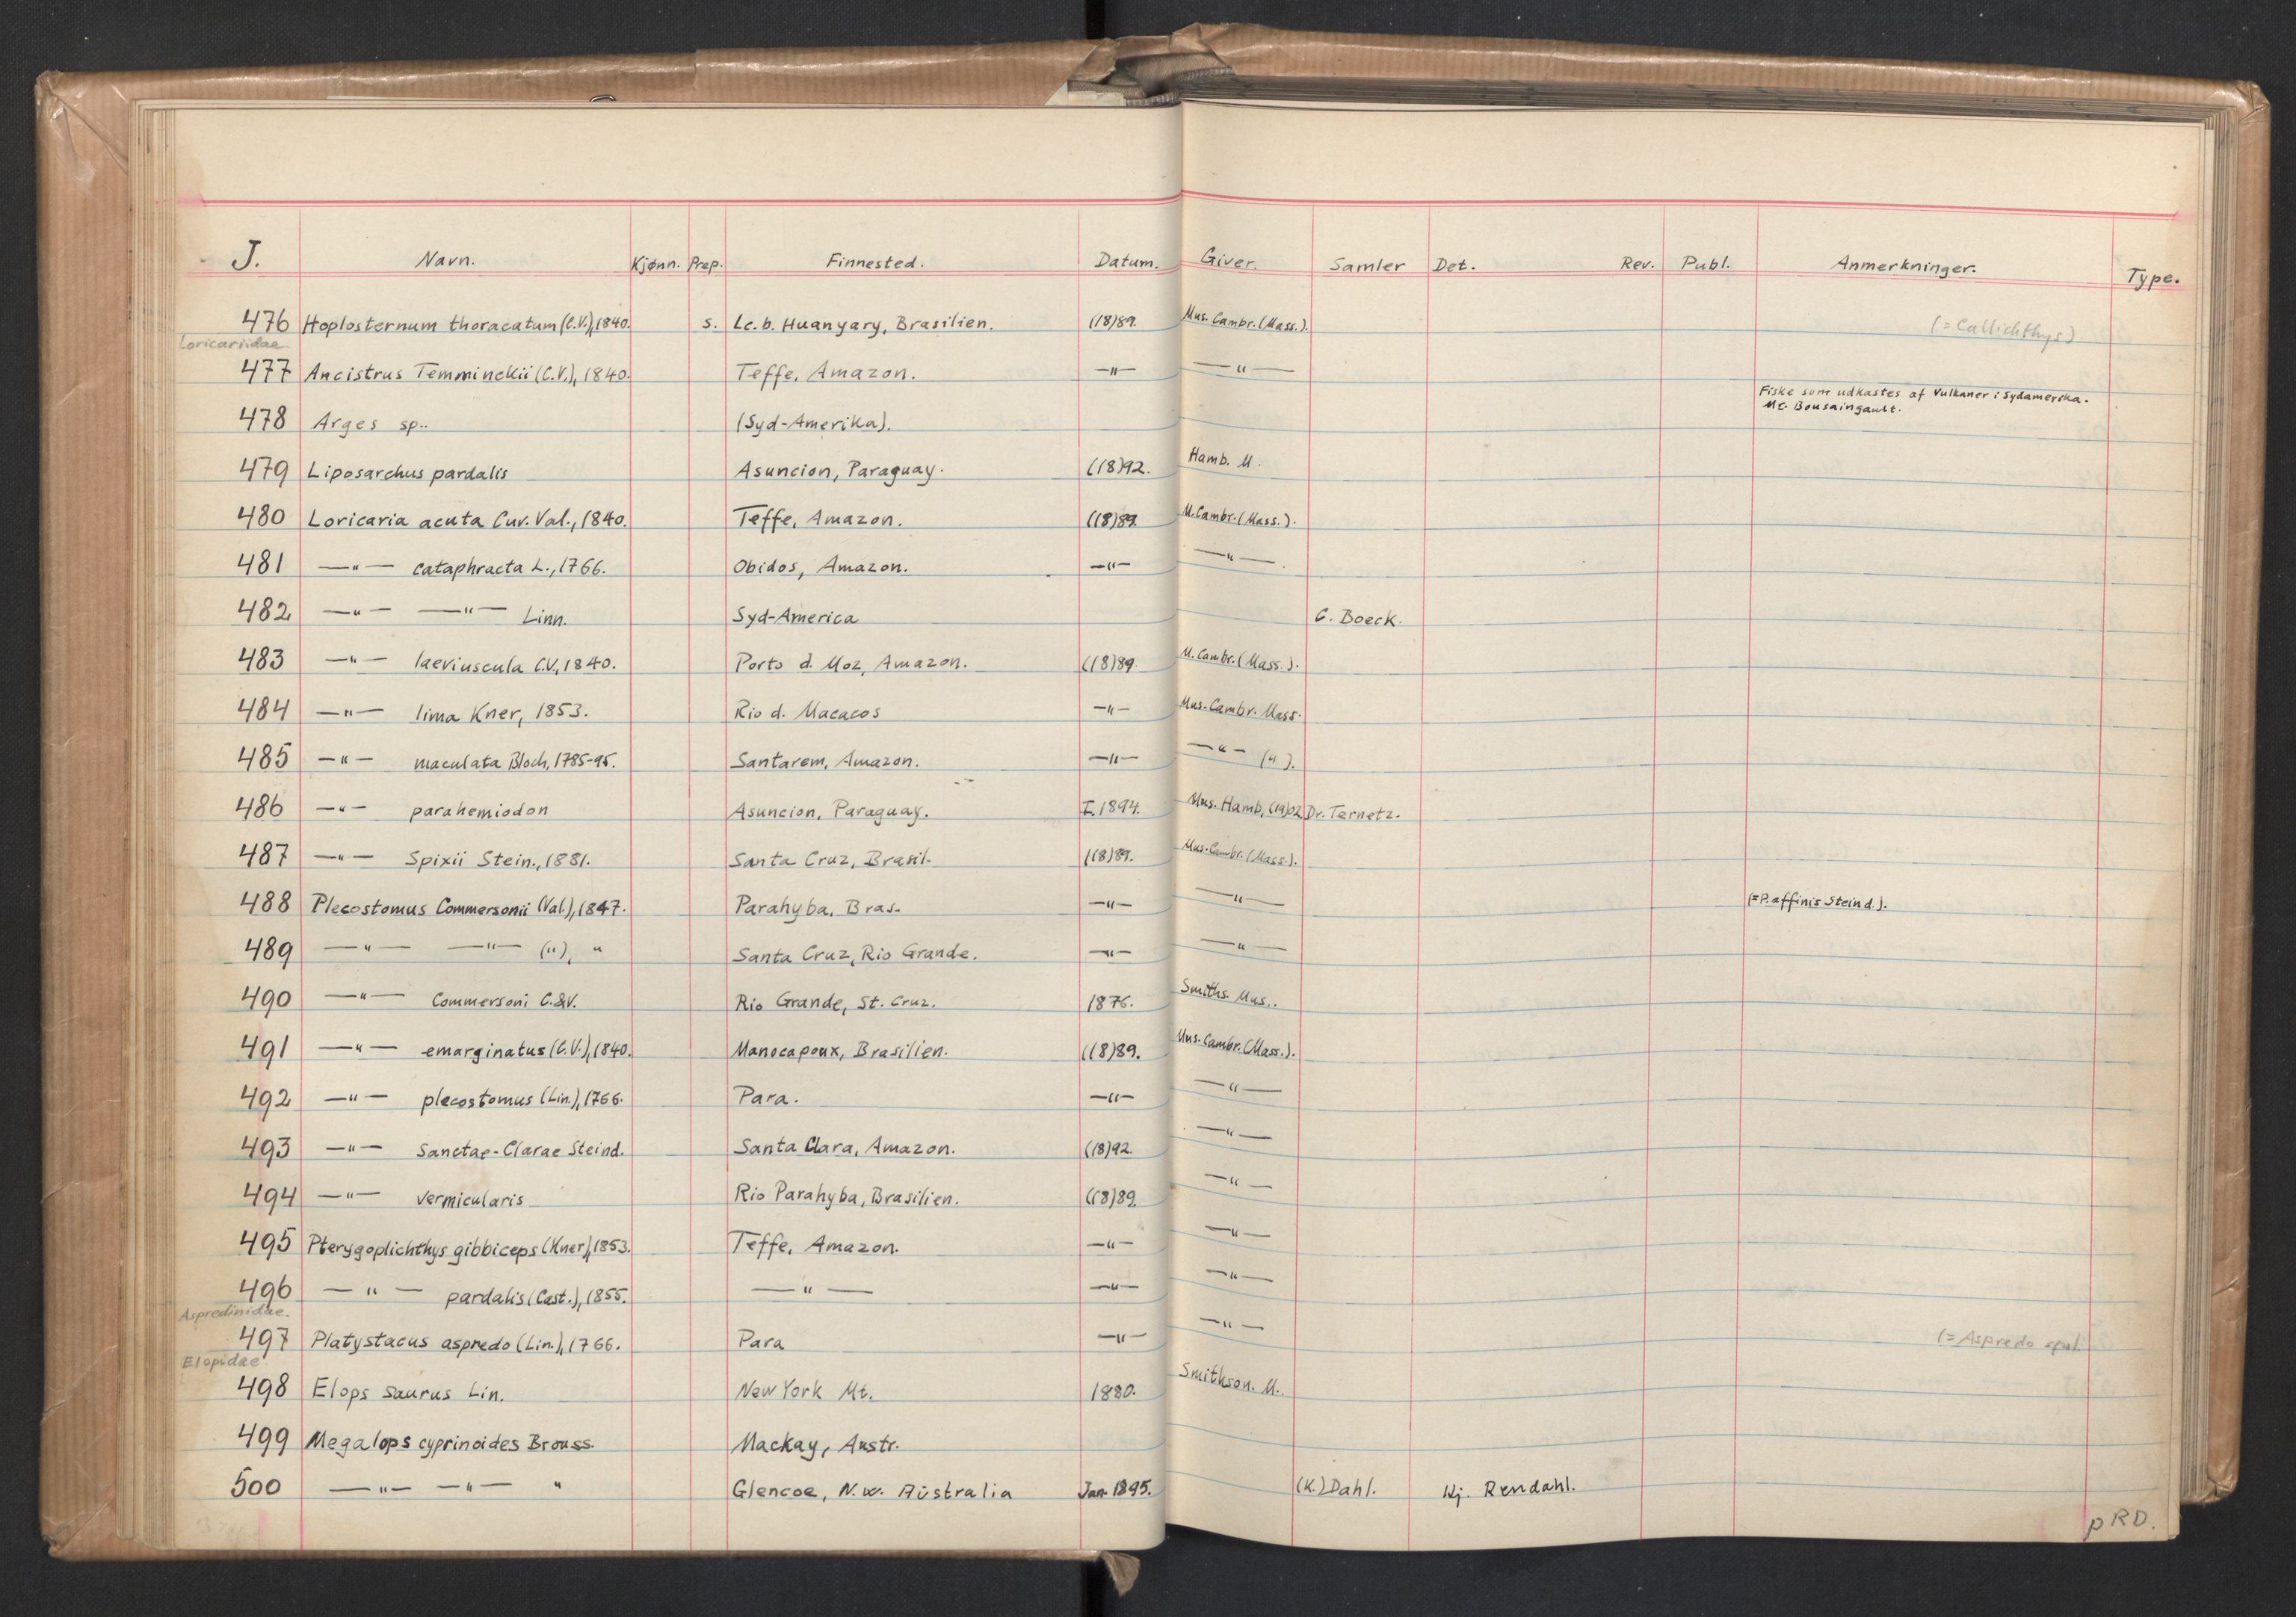 J. Navn. Kjønn. Prep. Finnested. Datum. Giver. Samler Det. Rev. Publ. Anmerkninger. Type.
476 Hoplosternum thoracatum (C.V.), 1840. s. Lc. b. Huanyary, Brasilien. (18)89. Mus. Cambr. (Mass.). (= Callichthys)
Loricariidae
477 Ancistrus Temminckii (C.V.), 1840. Teffe, Amazon. —"— —"—
Fiske som udkastes af Vulkaner i Sydamerika.
Mc. Bousaingault.
478 Arges sp.. (Syd-Amerika).
479 Liposarchus pardalis Asuncion, Paraguay. (18)92. Hamb. M.
480 Loricaria acuta Cuv. Val., 1840. Teffe, Amazon. (18)89. M. Cambr. (Mass.).
481 —"— cataphracta L., 1766. Obidos, Amazon. —"— —"—.
482 —"— —"— Linn. Syd-America C. Boeck.
483 —"— laeviuscula C.V., 1840. Porto d. Moz, Amazon. (18)89. M. Cambr. (Mass.).
484 —"— lima Kner, 1853. Rio d. Macacos —"— Mus. Cambr. Mass.
485 —"— maculata Bloch, 1785-95. Santarem, Amazon. —"— —"— (").
486 —"— parahemiodon Asuncion, Paraguay. I. 1894. Mus. Hamb, (19)02 Dr. Ternetz.
487 —"— Spixii Stein., 1881. Santa Cruz, Brasil. (18)89. Mus. Cambr. (Mass.).
488 Plecostomus Commersonii (Val.), 1847. Parahyba, Bras. —"— —"— (=P. affinis Steind.).
489 —"— —"— ("), " Santa Cruz, Rio Grande. —"— —"—
490 —"— Commersoni C.&V. Rio Grande, St. Cruz. 1876. Smiths. Mus..
491 —"— emarginatus (C.V.), 1840. Manocapoux, Brasilien. (18)89. Mus. Cambr. (Mass.).
492 —"— plecostomus (Lin.), 1766. Para. —"— —"—
493 —"— Sanctae-Clarae Steind. Santa Clara, Amazon. (18)92. —"—
494 —"— vermicularis Rio Parahyba, Brasilien. (18)89. —"—
495 Pterygoplichthys gibbiceps (Kner), 1853. Teffe, Amazon. —"— —"—
496 —"— pardalis (Cast.), 1855. —"— —"— —"—
Aspredinidae.
497 Platystacus aspredo (Lin.), 1766. Para —"— —"— (= Aspredo
Elopidae
498 Elops saurus Lin. New York Mt. 1880. Smithson. M.
499 Megalops cyprinoides Brouss. Mackay, Austr.
500 —"— —"— " Glencoe, N.w. Australia Jan. 1895. (K.) Dahl. Hj. Rendahl.
pRD.